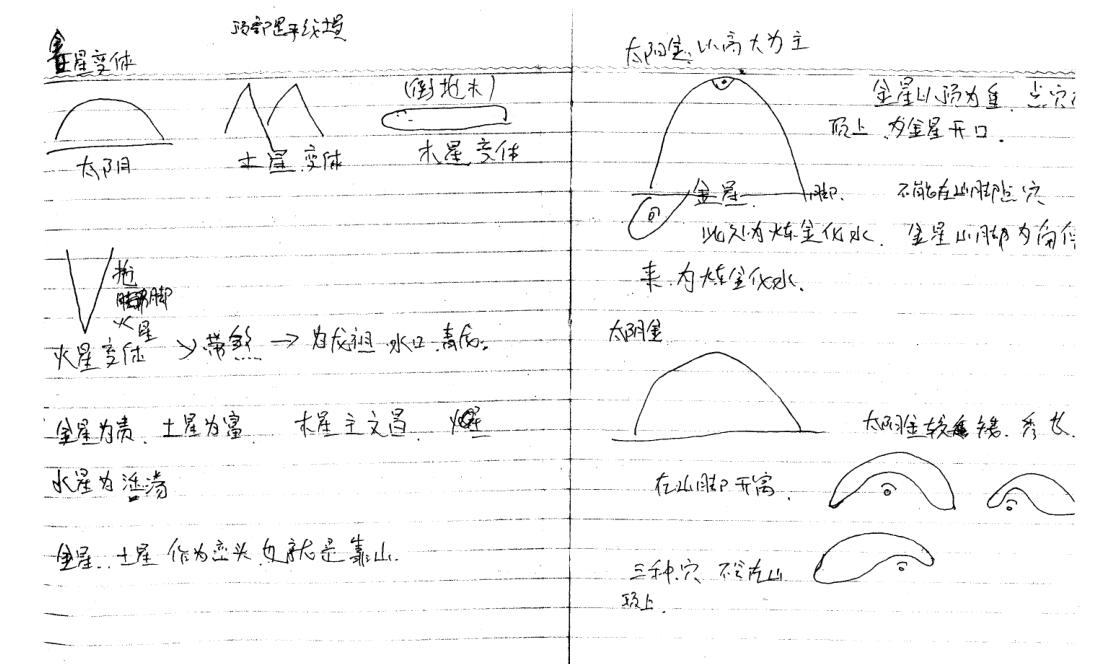 顶部是平线埂
金星变体
太阳
土星变体
(倒地木)
木星变体
抢
脚
火星
火星变体 → 带煞 → 为龙祖 水口
金星为贵. 土星为富. 木星主文昌.
水星为淫荡
金星. 土星 作为峦头 也就是靠山.
太阳金. 以高大为主
金星以顶为重. 点穴
顶上. 为金星开口.
金星 脚. 不能在山脚点穴
此处为炼金化水. 金星山脚为角
来. 为炼金化水.
太阴金
太阴金较矮. 秀长.
在山脚开窝.
三种穴 不会在山
顶上.